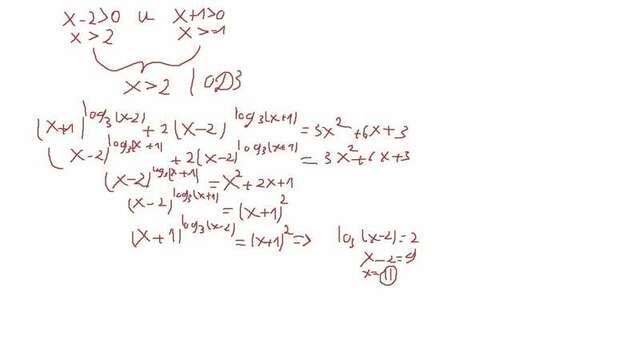 x-2>0 и x+1>0
x>2 x>-1
x>2 | ОДЗ
(x+1)^log₃(x-2) + 2(x-2)^log₃(x+1) = 3x²+6x+3
(x-2)^log₃(x+1) + 2(x-2)^log₃(x+1) = 3x²+6x+3
(x-2)^log₃(x+1) = x²+2x+1
(x-2)^log₃(x+1) = (x+1)²
(x+1)^log₃(x-2) = (x+1)² => log₃(x-2)=2
x-2=9
x=11